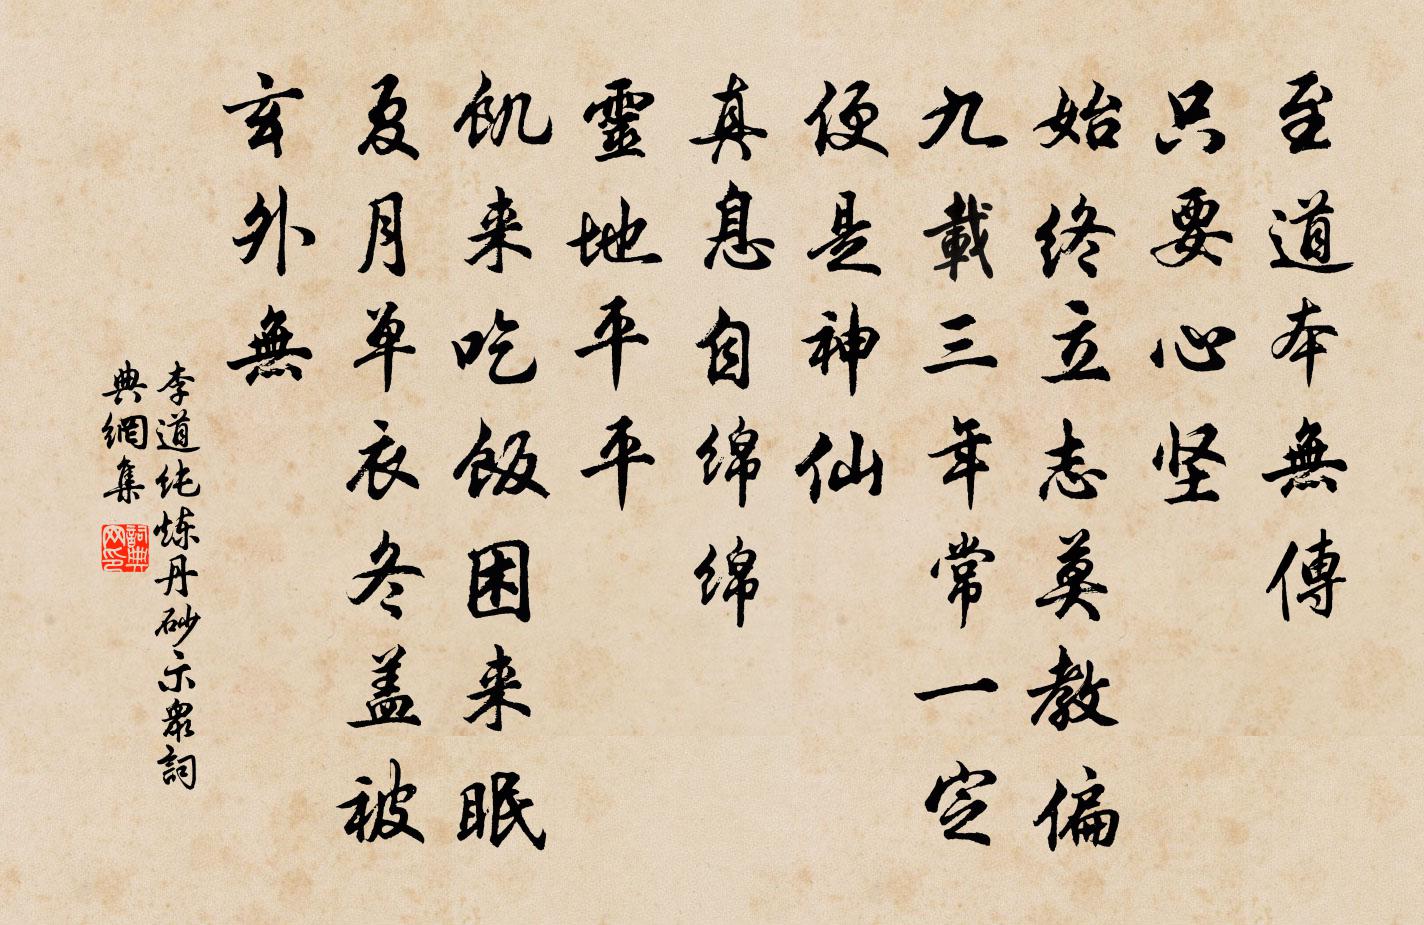 至道本無傳
只要心坚
始终立志莫教偏
九載三年常一定
便是神仙
真息自绵绵
靈地平平
飢来吃飯困来眠
夏月单衣冬盖被
玄外無
李道纯炼丹砂示眾詞
典網集
詞典网印